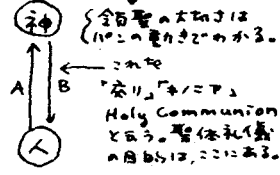 神
領聖の大切さは
パンの動きでわかる。
これを
A
B
「交り」「キノニア」
Holy Communion
と云う。聖体礼儀
の目的は、ここにある。
人